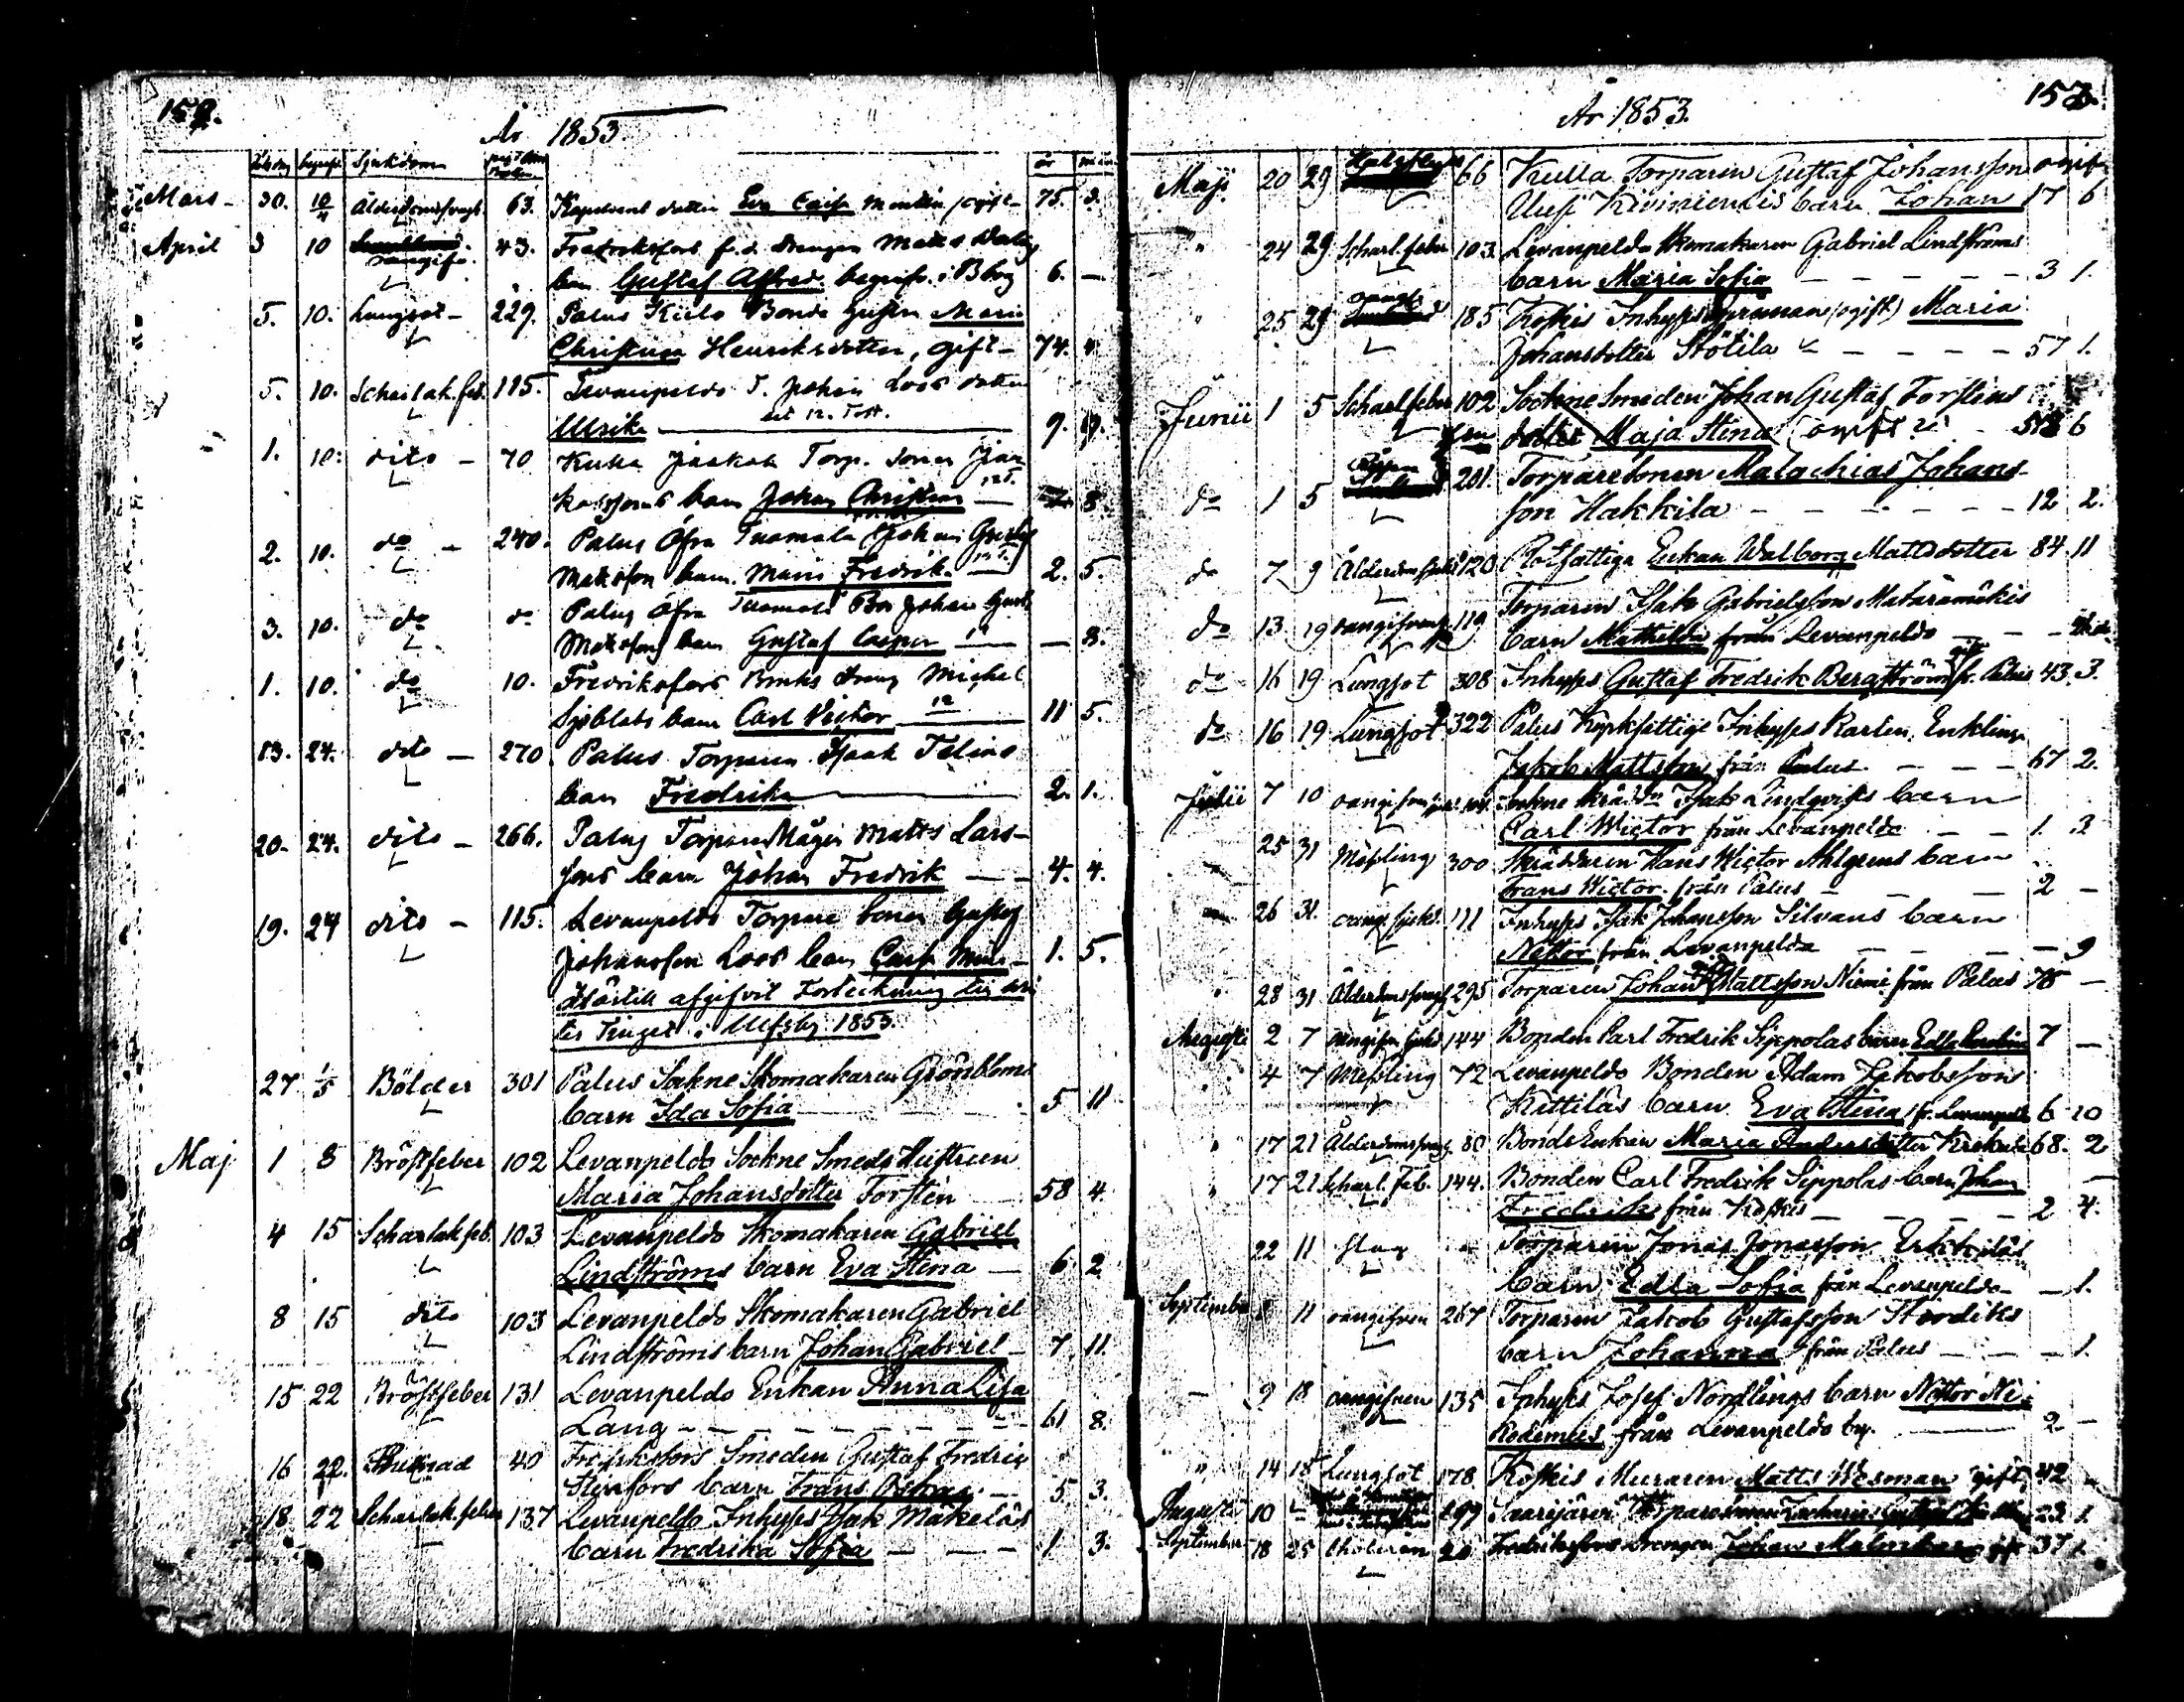 152.
År 1853.
begrafn. Sjukdom år mån
Mars 30. 10/4 Ålderdomssvagh. 63. Kapelans dotter Eva Caisa ogift 75. 3.
April 3 10 oangifv. 43. Fredriksfors f.d. Drengen Matts
barn Gustaf Alfred begrafv. i Bborg 6. —
5. 10. Lungsot — 229. Palus Kiela Bonde Hustrun Maria
Christina Henriksdotter, gift — 74. 4.
5. 10. Scharlak. feb. 115. Levanpeldo T. Johan Loos dotter
Ulrika 9. 9.
1. 10. dito — 70 Kulla Jaakola Torp. Sonen Jaa
kolssons barn Johan Christian — 8.
2. 10. do — 240. Palus Öfra Tuomola Johan Gustaf
Matsson barn Maria Fredrik. 2. 5.
3. 10. do do Palus Öfra Tuomola Bon Johan Gust.
Matssons barn Gustaf Casper — 3.
1. 10. do 10. Fredriksfors Bruks Dreng Michel
Sjöblads barn Carl Victor 11 5.
13. 24. dito — 270. Palus Torparen Isaak Felins
barn Fredrika 2. 1.
20. 24. dito — 266. Palus Torpare Mågen Matts Lars-
sons barn Johan Fredrik — — 4. 4.
19. 24 dito — 115. Levanpeldo Torpare Sonen Gustaf
Johansson Loos barn Caisa Mina — 1. 5.
Härtill afgifvit Förteckning till
ter Tinget i Ulfsby 1853.
27 1/5 Bölder 301 Palus Sockne Skomakaren Grönbloms
barn Ida Sofia 5 11
Maj 1 8 Bröstfeber 102 Levanpeldo Sockne Smeds Hustrun
Maria Johansdotter Torstén 58 4.
4 15 Scharlak.feb. 103 Levanpeldo Skomakaren Gabriel
Lindströms barn Eva Stina — 6 2
8 15 dito 103 Levanpeldo Skomakaren Gabriel
Lindströms barn Johan Gabriel — 7 11
15 22 Bröstfeber 131 Levanpeldo Enkan Anna Lisa
Lang — — — — 61 8.
16 22. 40 Fredriksfors Smeden Gustaf Fredric
Stenfors barn Frans Oskar — 5 3.
18. 22 Scharlak.feber 137 Levanpeldo Inhyses Isak Mäkeläs
barn Fredrika Sofia — — — 1 3.
153.
År 1853.
Maji 20 29 66 Kulla Torparen Gustaf Johansson
Uusi Kiiniensis barn Johan 17 6
" 24 29 Scharl.feber 103. Levanpeldo Skomakaren Gabriel Lindströms
barn Maria Sofia — — — — — 3 1.
" 25 29 oangif. 185 Koskis Inhyses (ogift) Maria
Johansdotter Stötila — — — — 57 1.
Junii 1 5 Scharl.feber 102 Sockne Smeden Johan Gustaf Torsténs
dotter Maja Stina (ogift?) 6
do 1 5 201. Torparesonen Malachias Johans
son Hakkila — — — — — 12 2.
do 7 9 120 Rotfattiga Enkan Walborg Mattsdotter 84 11
do 13. 19 oangifven 119 Torparen Isak Gabrielsson Mataramäkis
barn Mathilda från Levanpeldo — — —
do 16 19 Lungsot 308 Inhyses Gustaf Fredrik Bergström gift fr. Palus 43 3.
do 16 19 Lungsot 322 Palus Kyrkfattige Inhyses Karlen, Enkling
Jakob Mattsson från Palus — — — 67 2.
Julii 7 10 Sockne Skräddn Isak Lindqvists barn
Carl Wictor från Levanpeldo — — 1. 3
25 31 Mässling 300 Skräddaren Hans Wictor Ahlgrens barn
Frans Wictor från Palus — — 2 —
26 31. oang. sjukd. 111 Inhyses Isak Johansson Silvans barn
Nestor från Levanpeldo — — — 9
" 28 31 Ålderdomssvagh. 295 Torparen Johan Mattsson Niemi från Palus 78 —
Augusti 2 7 144 Bonden Carl Fredrik Sippolas barn Edla Carolina 7 —
" 4 7 Mässling 72 Levanpeldo Bonden Adam Jakobsson
Kittiläs barn Eva Stina fr. Levanpeldo 6 10
" 17 21 Ålderdomssvagh. 80 Bonde Enkan Maria Andersdotter Krekula 68. 2
" 17 21 Scharl. Feb. 144. Bonden Carl Fredrik Sippolas barn Johan
Fredrik från Koskis — — — — 2 4.
22 11 slag Torparen Jonas Jonasson Erkkiläs
barn Edla Sofia från Levanpeldo — — 1.
September 11 oangifven 267 Torparen Jakob Gustafsson Nordiks
barn Johanna från Palus — — — 1.
— 9 18 oangifven 135 Inhyses Josef Nordlings barn Nestor Ni-
kodemus från Levanpeldo by. — 2 —
" 14 18 Lungsot 178. Koskis Muraren Matts Wesman gift 42 —
Augusti 10 Saarijärvi Torparesonen Zacharias 23 1.
September 18 25 Choleran 20 Fredriksfors Drengen Johan gift 37 1.